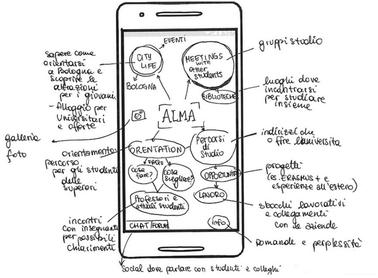 EVENTI
sapere come
orientarsi
a Bologna e
scoprire le
attrazioni
per i giovani.
- Alloggio per
Universitari
e offerte
CITY
LIFE
BOLOGNA
MEETINGS
with
other
students
BIBLIOTECHE
gruppi studio
luoghi dove
incontrarsi
per studiare
insieme
galleria
foto
ALMA
orientamento
percorso
per gli studenti
delle
superiori
ORIENTATION
cosa
fare?
cosa
scegliere?
Professori e
studenti
Percorsi
di
studio
OPPORTUNITÀ
LAVORO
info
CHAT FORUM
indirizzi che
offre l'università
progetti
(es. ERASMUS + e
esperienze all'estero)
sbocchi lavorativi
e collegamenti
con le aziende
domande e perplessità
incontri
con insegnanti
per possibili
chiarimenti
social dove parlare con studenti e colleghi